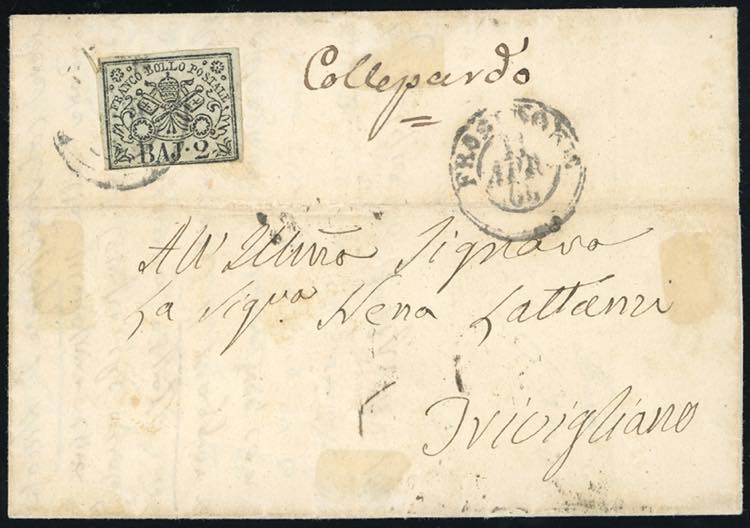 FRANCO BOLLO POSTALE
BAJ. 2
Collepardo
FROSINONE
11
APR
66
All' Illma Signora
La Sigra Nena Lattanzi
Trivigliano